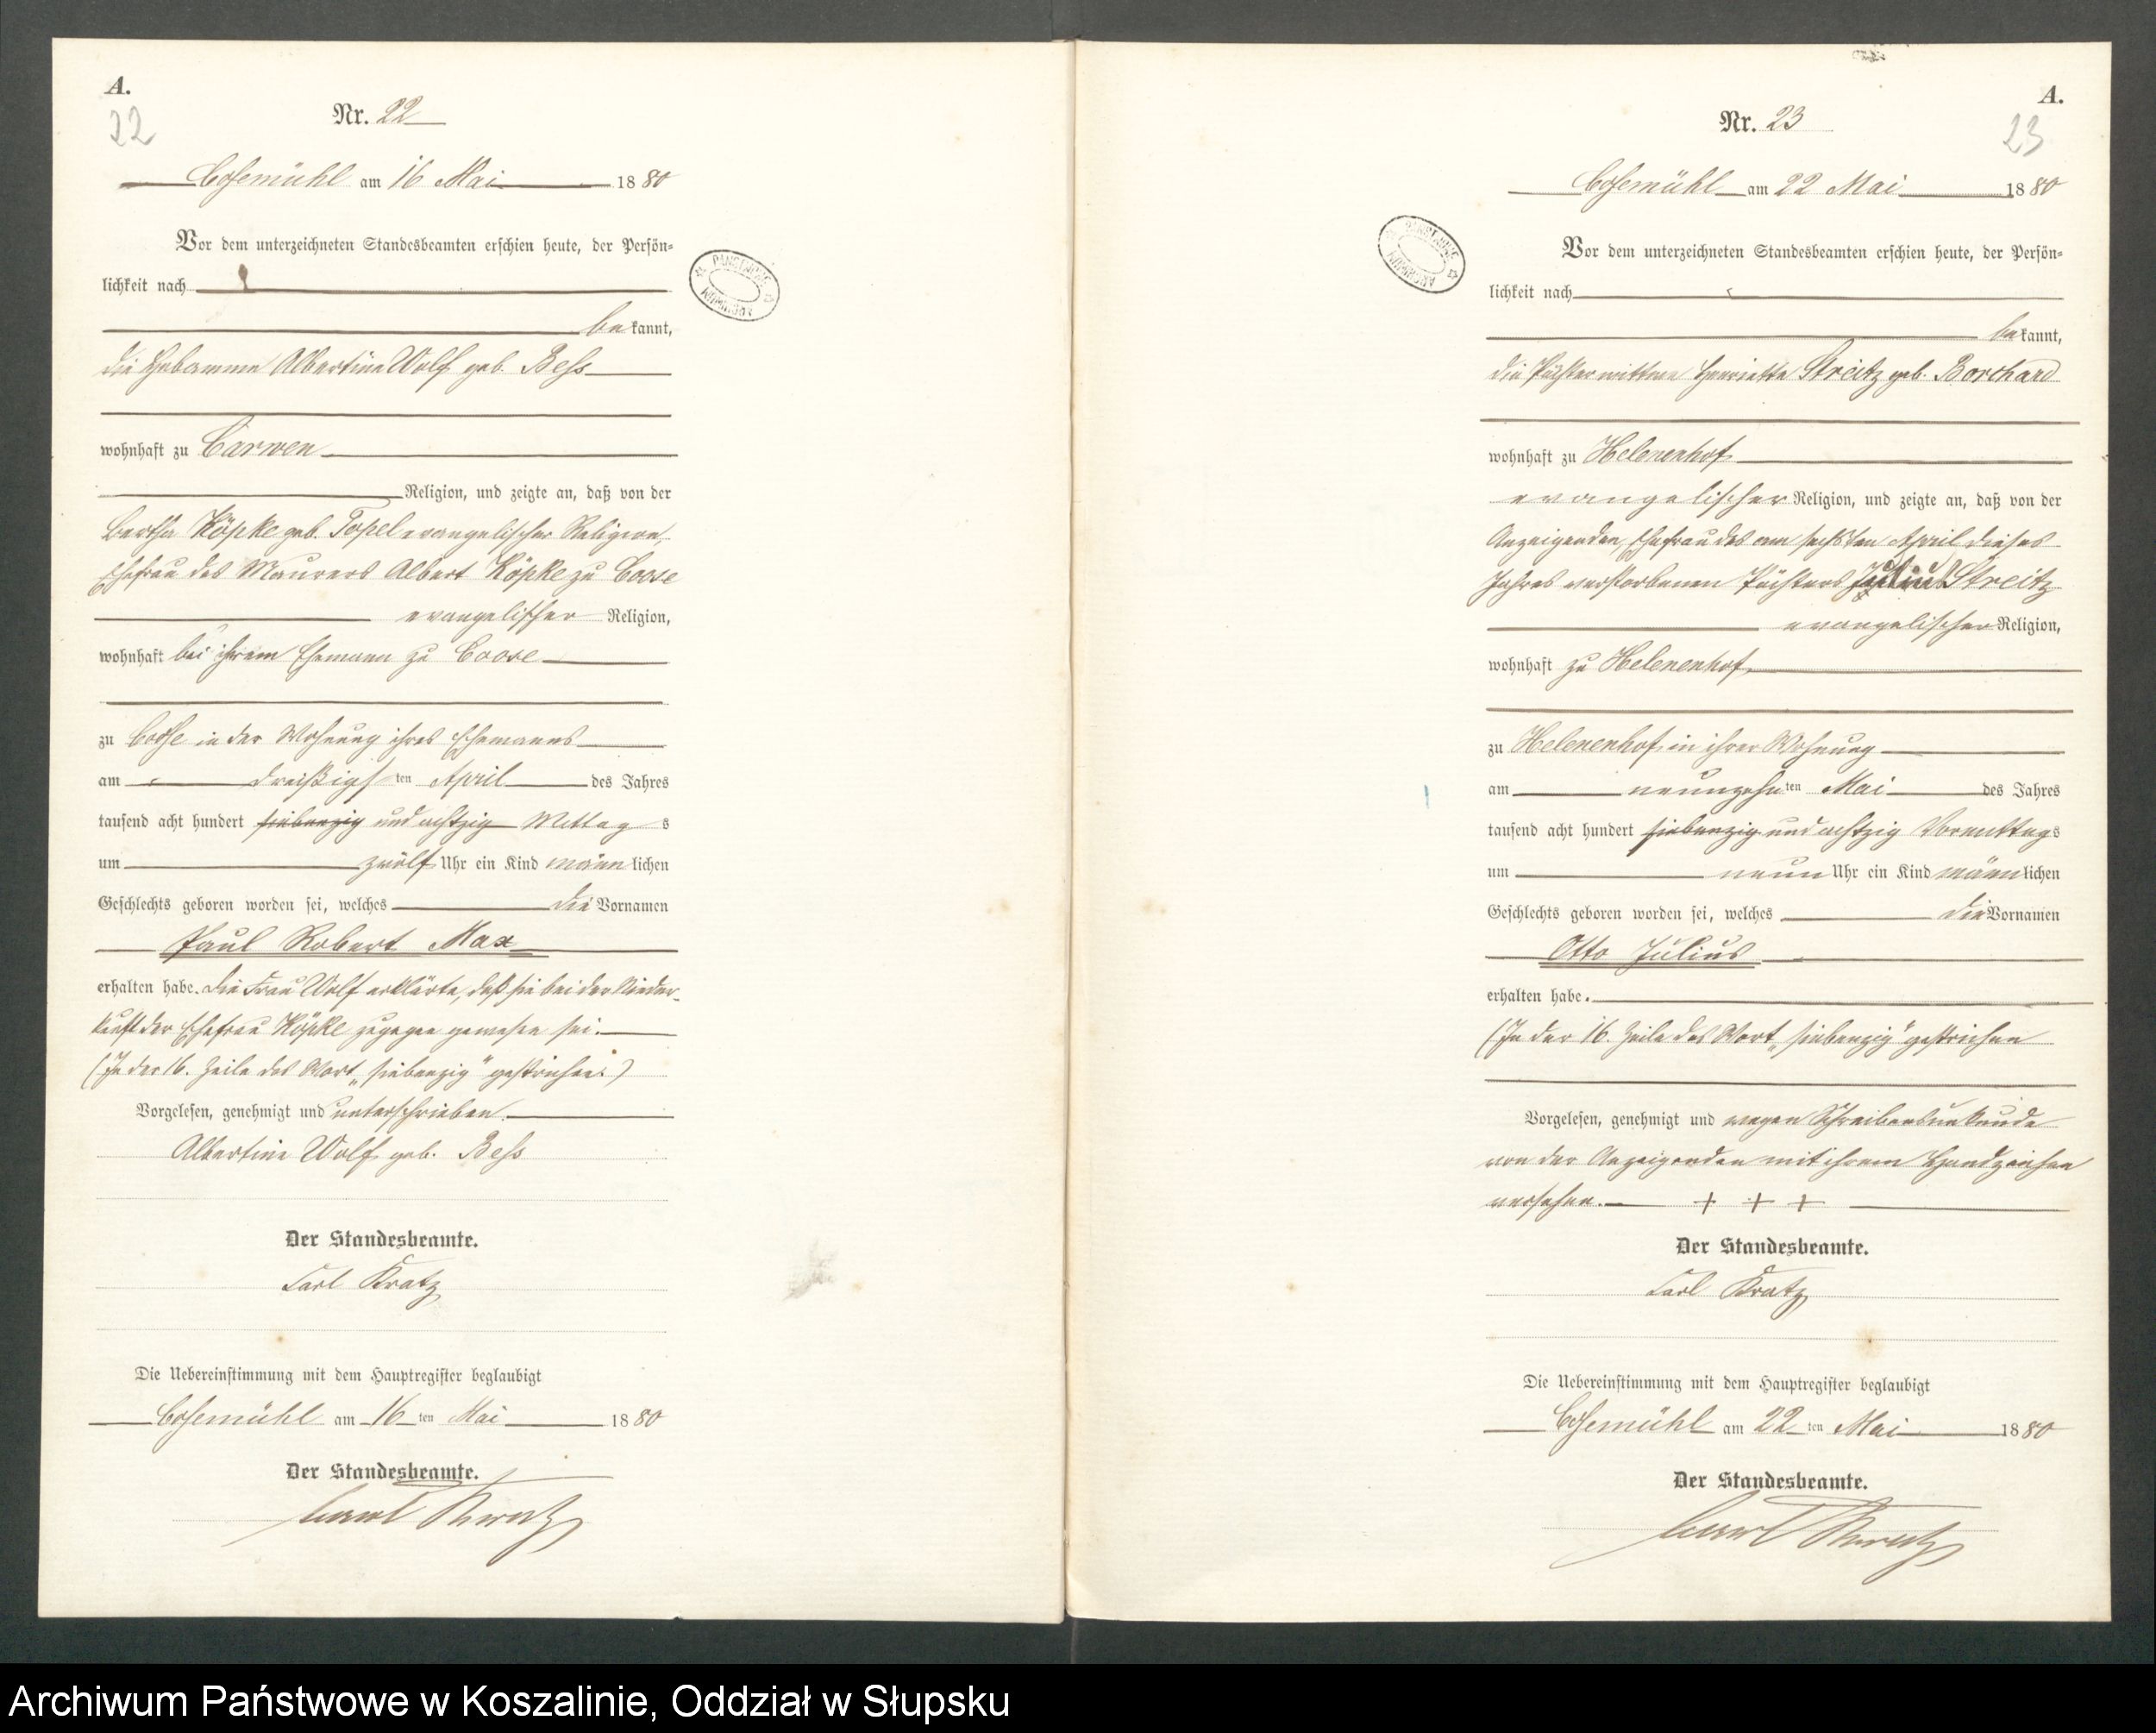 A.
22
Nr. 22
Cosemühl am 16 Mai 1880
Vor dem unterzeichneten Standesbeamten erschien heute, der Persön-
lichkeit nach
bekannt,
die Hebamme Albertine Wolf geb. Bess
wohnhaft zu Carwen
Religion, und zeigte an, daß von der
Bertha Köpke geb. Topel evangelischer Religion,
Ehefrau des Maurers Albert Köpke zu Coose
evangelischer Religion,
wohnhaft bei ihrem Ehemann zu Coose
zu Coose in der Wohnung ihres Ehemanns
am dreißigsten April des Jahres
tausend acht hundert siebenzig und achtzig Mittags
um zwölf Uhr ein Kind männlichen
Geschlechts geboren worden sei, welches die Vornamen
Paul Robert Max
erhalten habe. Die Frau Wolf erklärte, daß sie bei der Nieder-
kunft der Ehefrau Köpke zugegen gewesen sei.
(In der 16. Zeile das Wort „siebenzig" gestrichen.)
Vorgelesen, genehmigt und unterschrieben.
Albertine Wolf geb. Bess
Der Standesbeamte.
Carl Kratz
Die Uebereinstimmung mit dem Hauptregister beglaubigt
Cosemühl am 16ten Mai 1880
Der Standesbeamte.
Carl Kratz
A.
23
Nr. 23
Cosemühl am 22 Mai 1880
Vor dem unterzeichneten Standesbeamten erschien heute, der Persön-
lichkeit nach
bekannt,
die Pächterwittwe Henriette Streitz geb. Borchard
wohnhaft zu Helenenhof
evangelischer Religion, und zeigte an, daß von der
Anzeigenden, Ehefrau des am sechsten April dieses
Jahres verstorbenen Pächters Julius Streitz
evangelischer Religion,
wohnhaft zu Helenenhof
zu Helenenhof in ihrer Wohnung
am neunzehnten Mai des Jahres
tausend acht hundert siebenzig und achtzig Vormittags
um neun Uhr ein Kind männlichen
Geschlechts geboren worden sei, welches die Vornamen
Otto Julius
erhalten habe.
(In der 16. Zeile das Wort „siebenzig" gestrichen
Vorgelesen, genehmigt und wegen Schreibensunkunde
von der Anzeigenden mit ihrem Handzeichen
versehen. + + +
Der Standesbeamte.
Carl Kratz
Die Uebereinstimmung mit dem Hauptregister beglaubigt
Cosemühl am 22ten Mai 1880
Der Standesbeamte.
Carl Kratz
Archiwum Państwowe w Koszalinie, Oddział w Słupsku